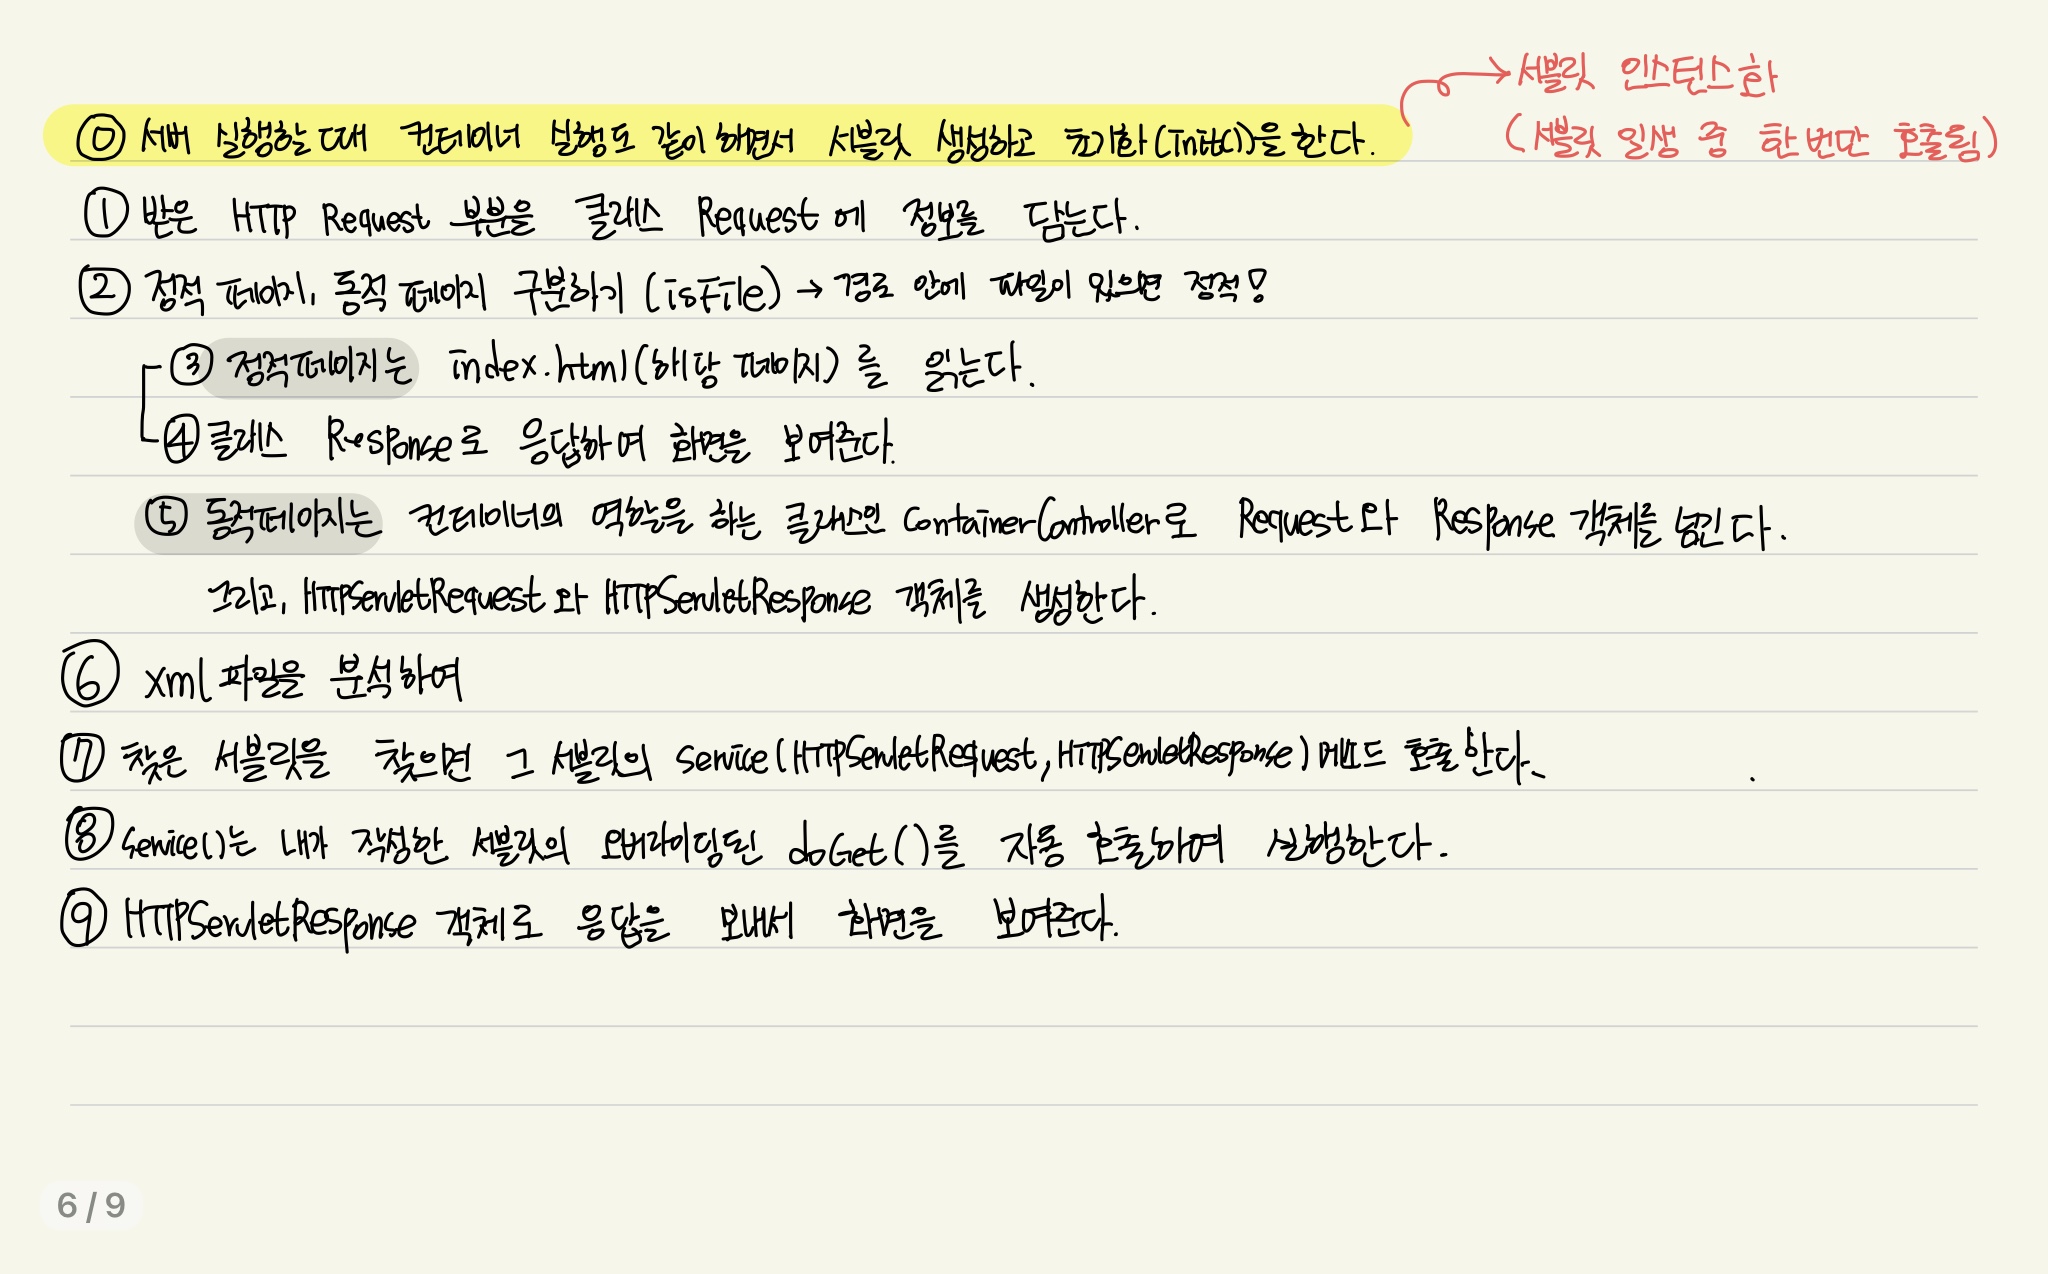 → 서블릿 인스턴스화
(서블릿 일생 중 한번만 호출됨)
⓪ 서버 실행할 때 컨테이너 실행도 같이 하면서 서블릿 생성하고 초기화(init())을 한다.
① 받은 HTTP Request 부분을 클래스 Request에 정보를 담는다.
② 정적 페이지, 동적 페이지 구분하기 (isFile) → 경로 안에 파일이 있으면 정적!
③ 정적페이지는 index.html(해당 페이지)를 읽는다.
④ 클래스 Response로 응답하여 화면을 보여준다.
⑤ 동적페이지는 컨테이너의 역할을 하는 클래스인 ContainerController로 Request와 Response 객체를 넘긴다.
그리고, HTTPServletRequest와 HTTPServletResponse 객체를 생성한다.
⑥ xml파일을 분석하여
⑦ 찾은 서블릿을 찾으면 그 서블릿의 service(HTTPServletRequest, HTTPServletResponse)메소드 호출한다.
⑧ service()는 내가 작성한 서블릿의 오버라이딩된 doGet()를 자동 호출하여 실행한다.
⑨ HTTPServletResponse 객체로 응답을 보내서 화면을 보여준다.
6 / 9